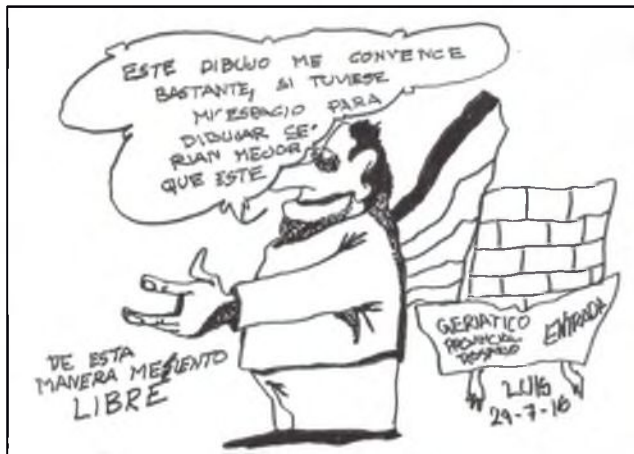 ESTE DIBUJO ME CONVENCE
BASTANTE, SI TUVIESE
MI ESPACIO PARA
DIBUJAR SE-
RIAN MEJOR
QUE ESTE
DE ESTA
MANERA ME SIENTO
LIBRE
GERIATICO
PROVINCIAL
ROSARIO
ENTRADA
LUIS
29-7-16